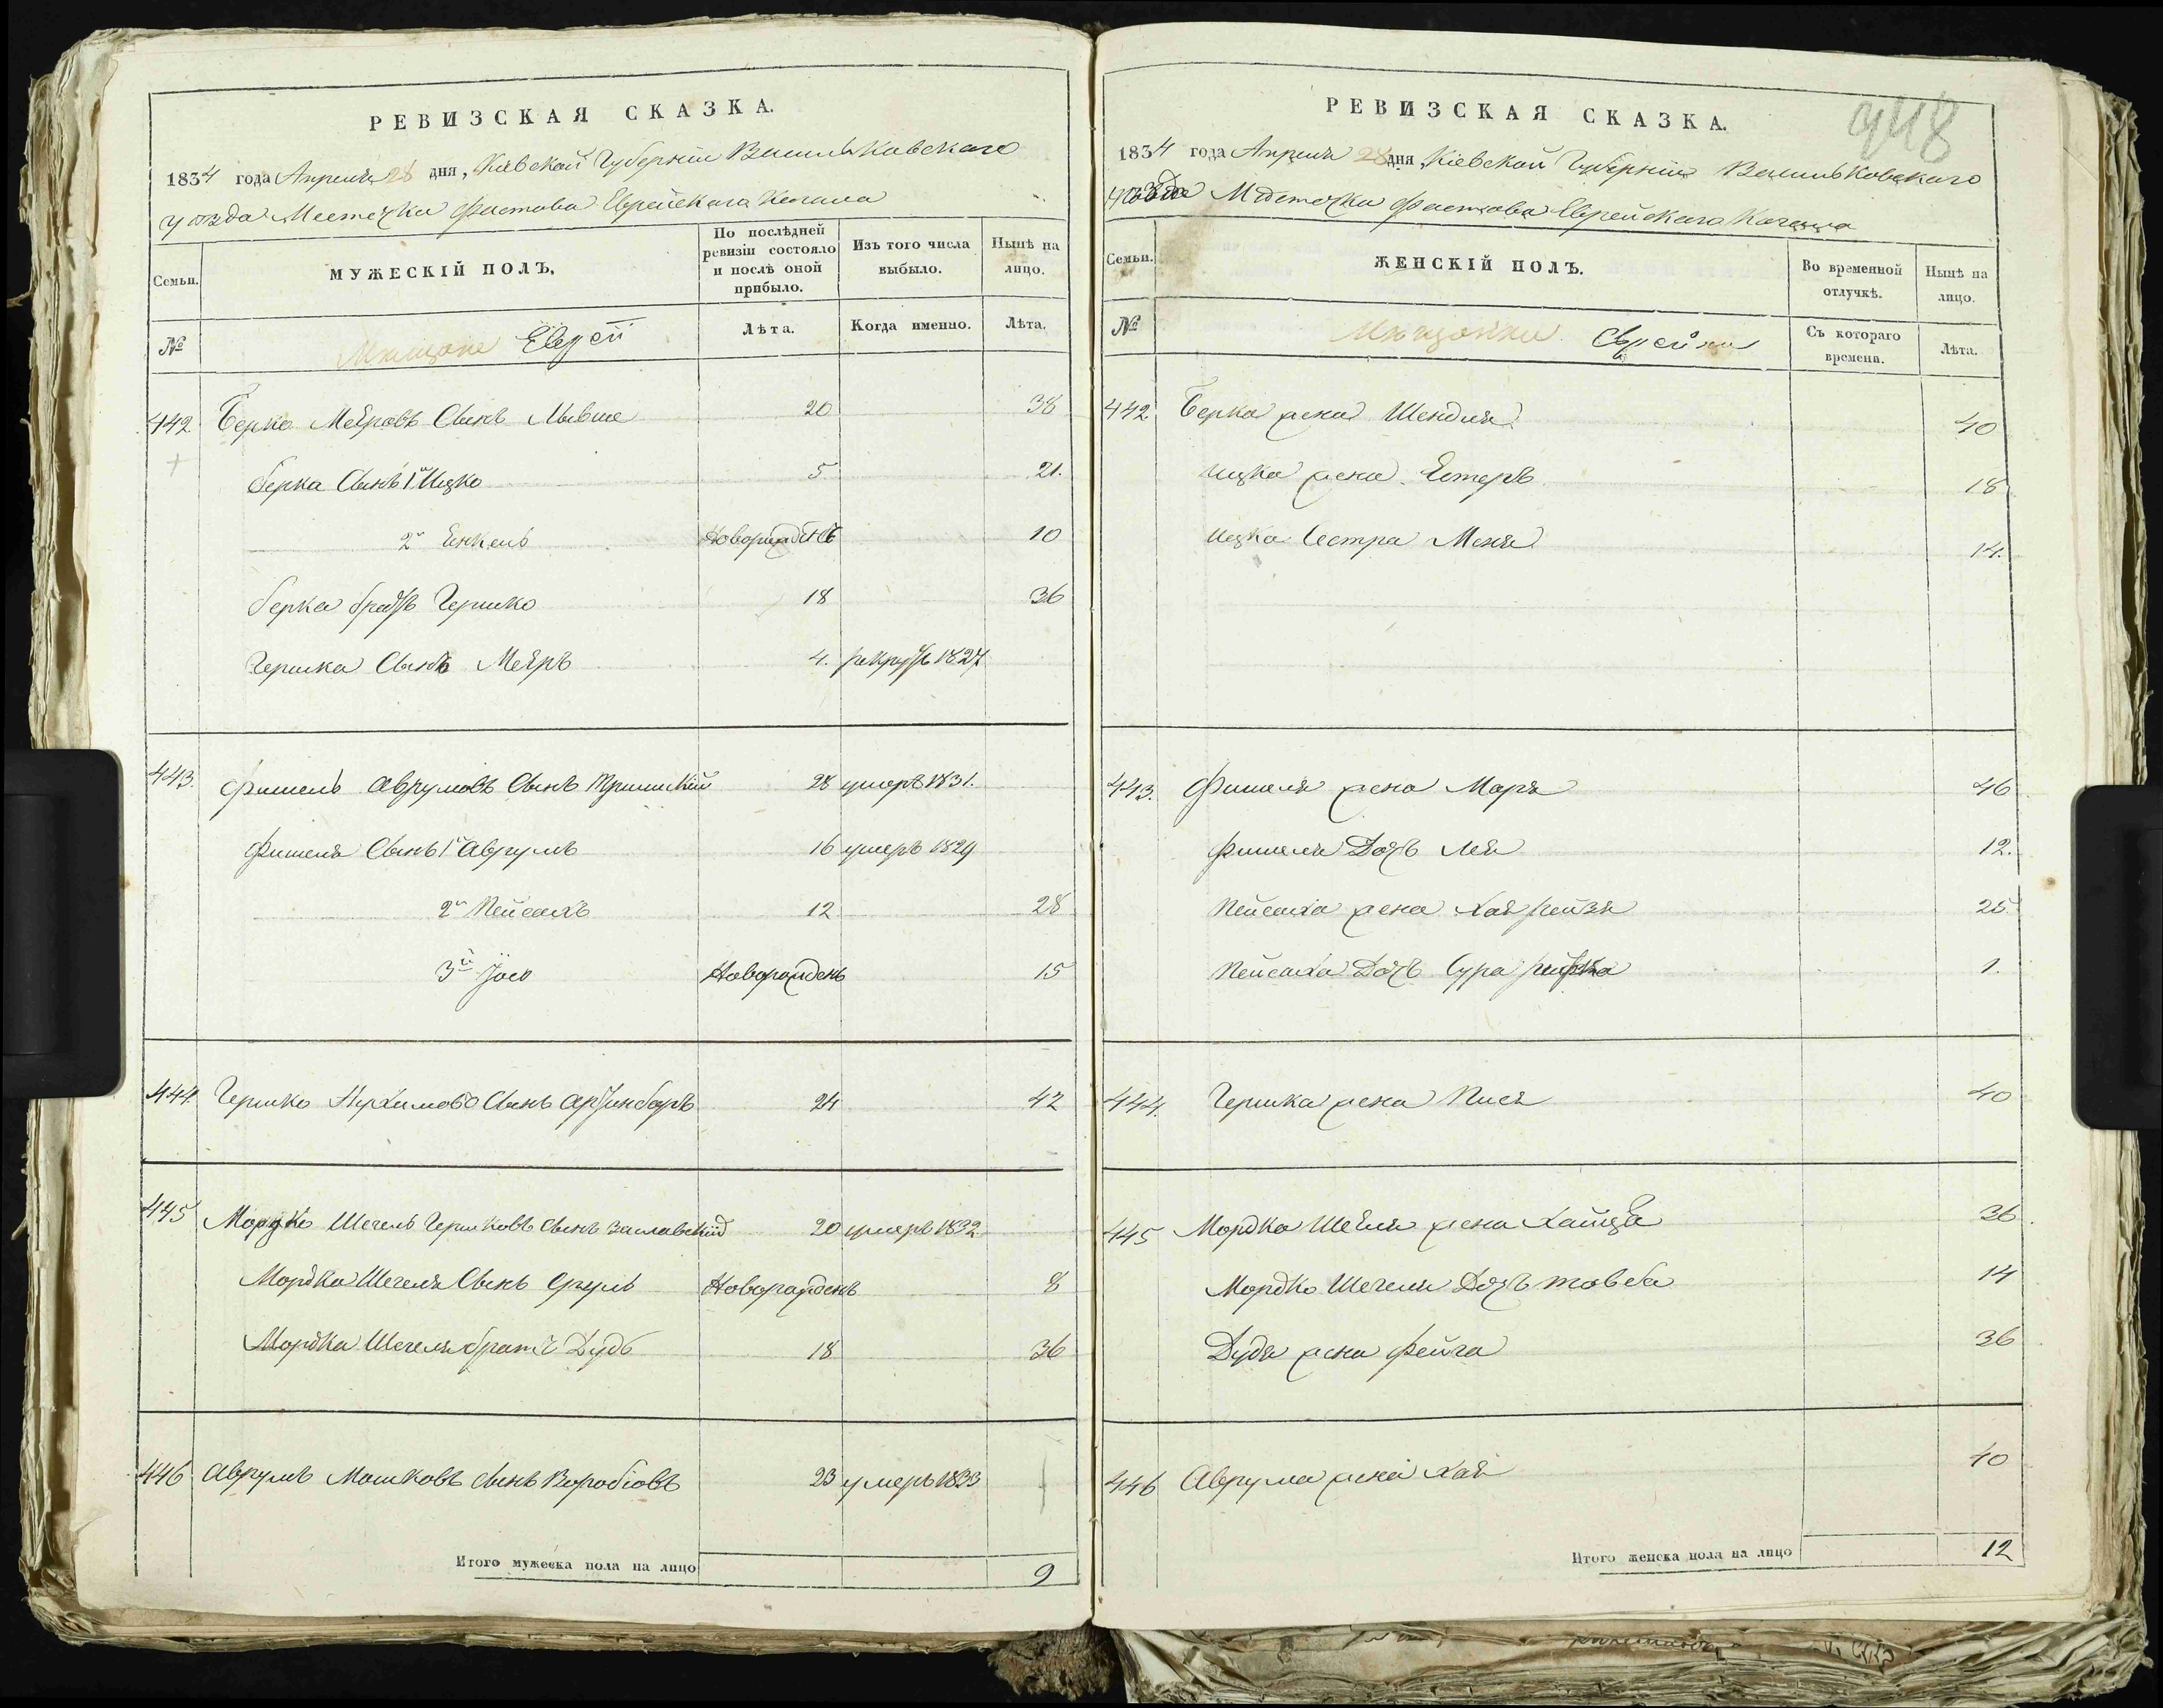 РЕВИЗСКАЯ СКАЗКА.
1834 года Апреля 28 дня, Кіевской Губерніи Васильковскаго
уѣзда Местечка Фастова Еврейскаго Кагала
Семьи.
МУЖЕСКІЙ ПОЛЪ.
По послѣдней ревизіи состояло и послѣ оной прибыло.
Изъ того числа выбыло.
Нынѣ на лицо.
№
Мещане Евреи
Лѣта.
Когда именно.
Лѣта.
442 Берко Меѣровъ Сынъ 20 38
Берка Сынъ 1й Ицко 5 21.
2й Енкель Новорожденъ 10
Берка братъ Гершко 18 36
Гершка Сынъ Меѣръ 4. рекрутъ 1827
443. Фишель Аврумовъ Сынъ 28 умеръ 1831.
Фишеля Сынъ 1й Аврумъ 16 умеръ 1829
2й Пейсахъ 12 28
3й Іось Новорожденъ 15
444 Гершко Нухимовъ Сынъ 24 42
445 Мордко Шегель Гершковъ Сынъ Заславскій 20 умеръ 1832
Мордка Шегеля Сынъ Сруль Новорожденъ 8
Мордка Шегеля братъ Дудь 18 36
446 Аврумъ Мошковъ Сынъ Воробіовъ 23 умеръ 1833
Итого мужеска пола на лицо 9
948
РЕВИЗСКАЯ СКАЗКА.
1834 года Апреля 28 дня, Кіевской Губерніи Васильковскаго
уѣзда Мѣстечка Фастова Еврейскаго Кагала
Семьи.
ЖЕНСКІЙ ПОЛЪ.
Во временной отлучкѣ.
Нынѣ на лицо.
№
Мещанки Еврейки
Съ котораго времени.
Лѣта.
442 Берка жена Шендля 40
Ицка жена Естеръ 18
Ицка Сестра Меня 14.
443. Фишеля жена Маря 46
Фишеля Дочь Лея 12.
Пейсаха жена Хая рейзя 25.
Пейсаха Дочь Сура 1.
444. Гершка жена Пися 40
445 Мордка жена 36.
Мордко Шегеля Дочь товба 14
Дудя жена Фейга 36
446 Аврума жена Хая 40
Итого женска пола на лицо 12